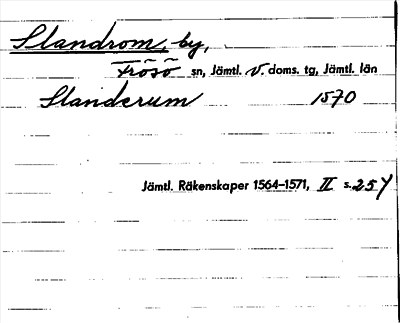 Slandrom, by,
Frösö sn, Jämtl. V. doms. tg, Jämtl. län
Slanderum 1570
Jämtl. Räkenskaper 1564–1571, II s. 25